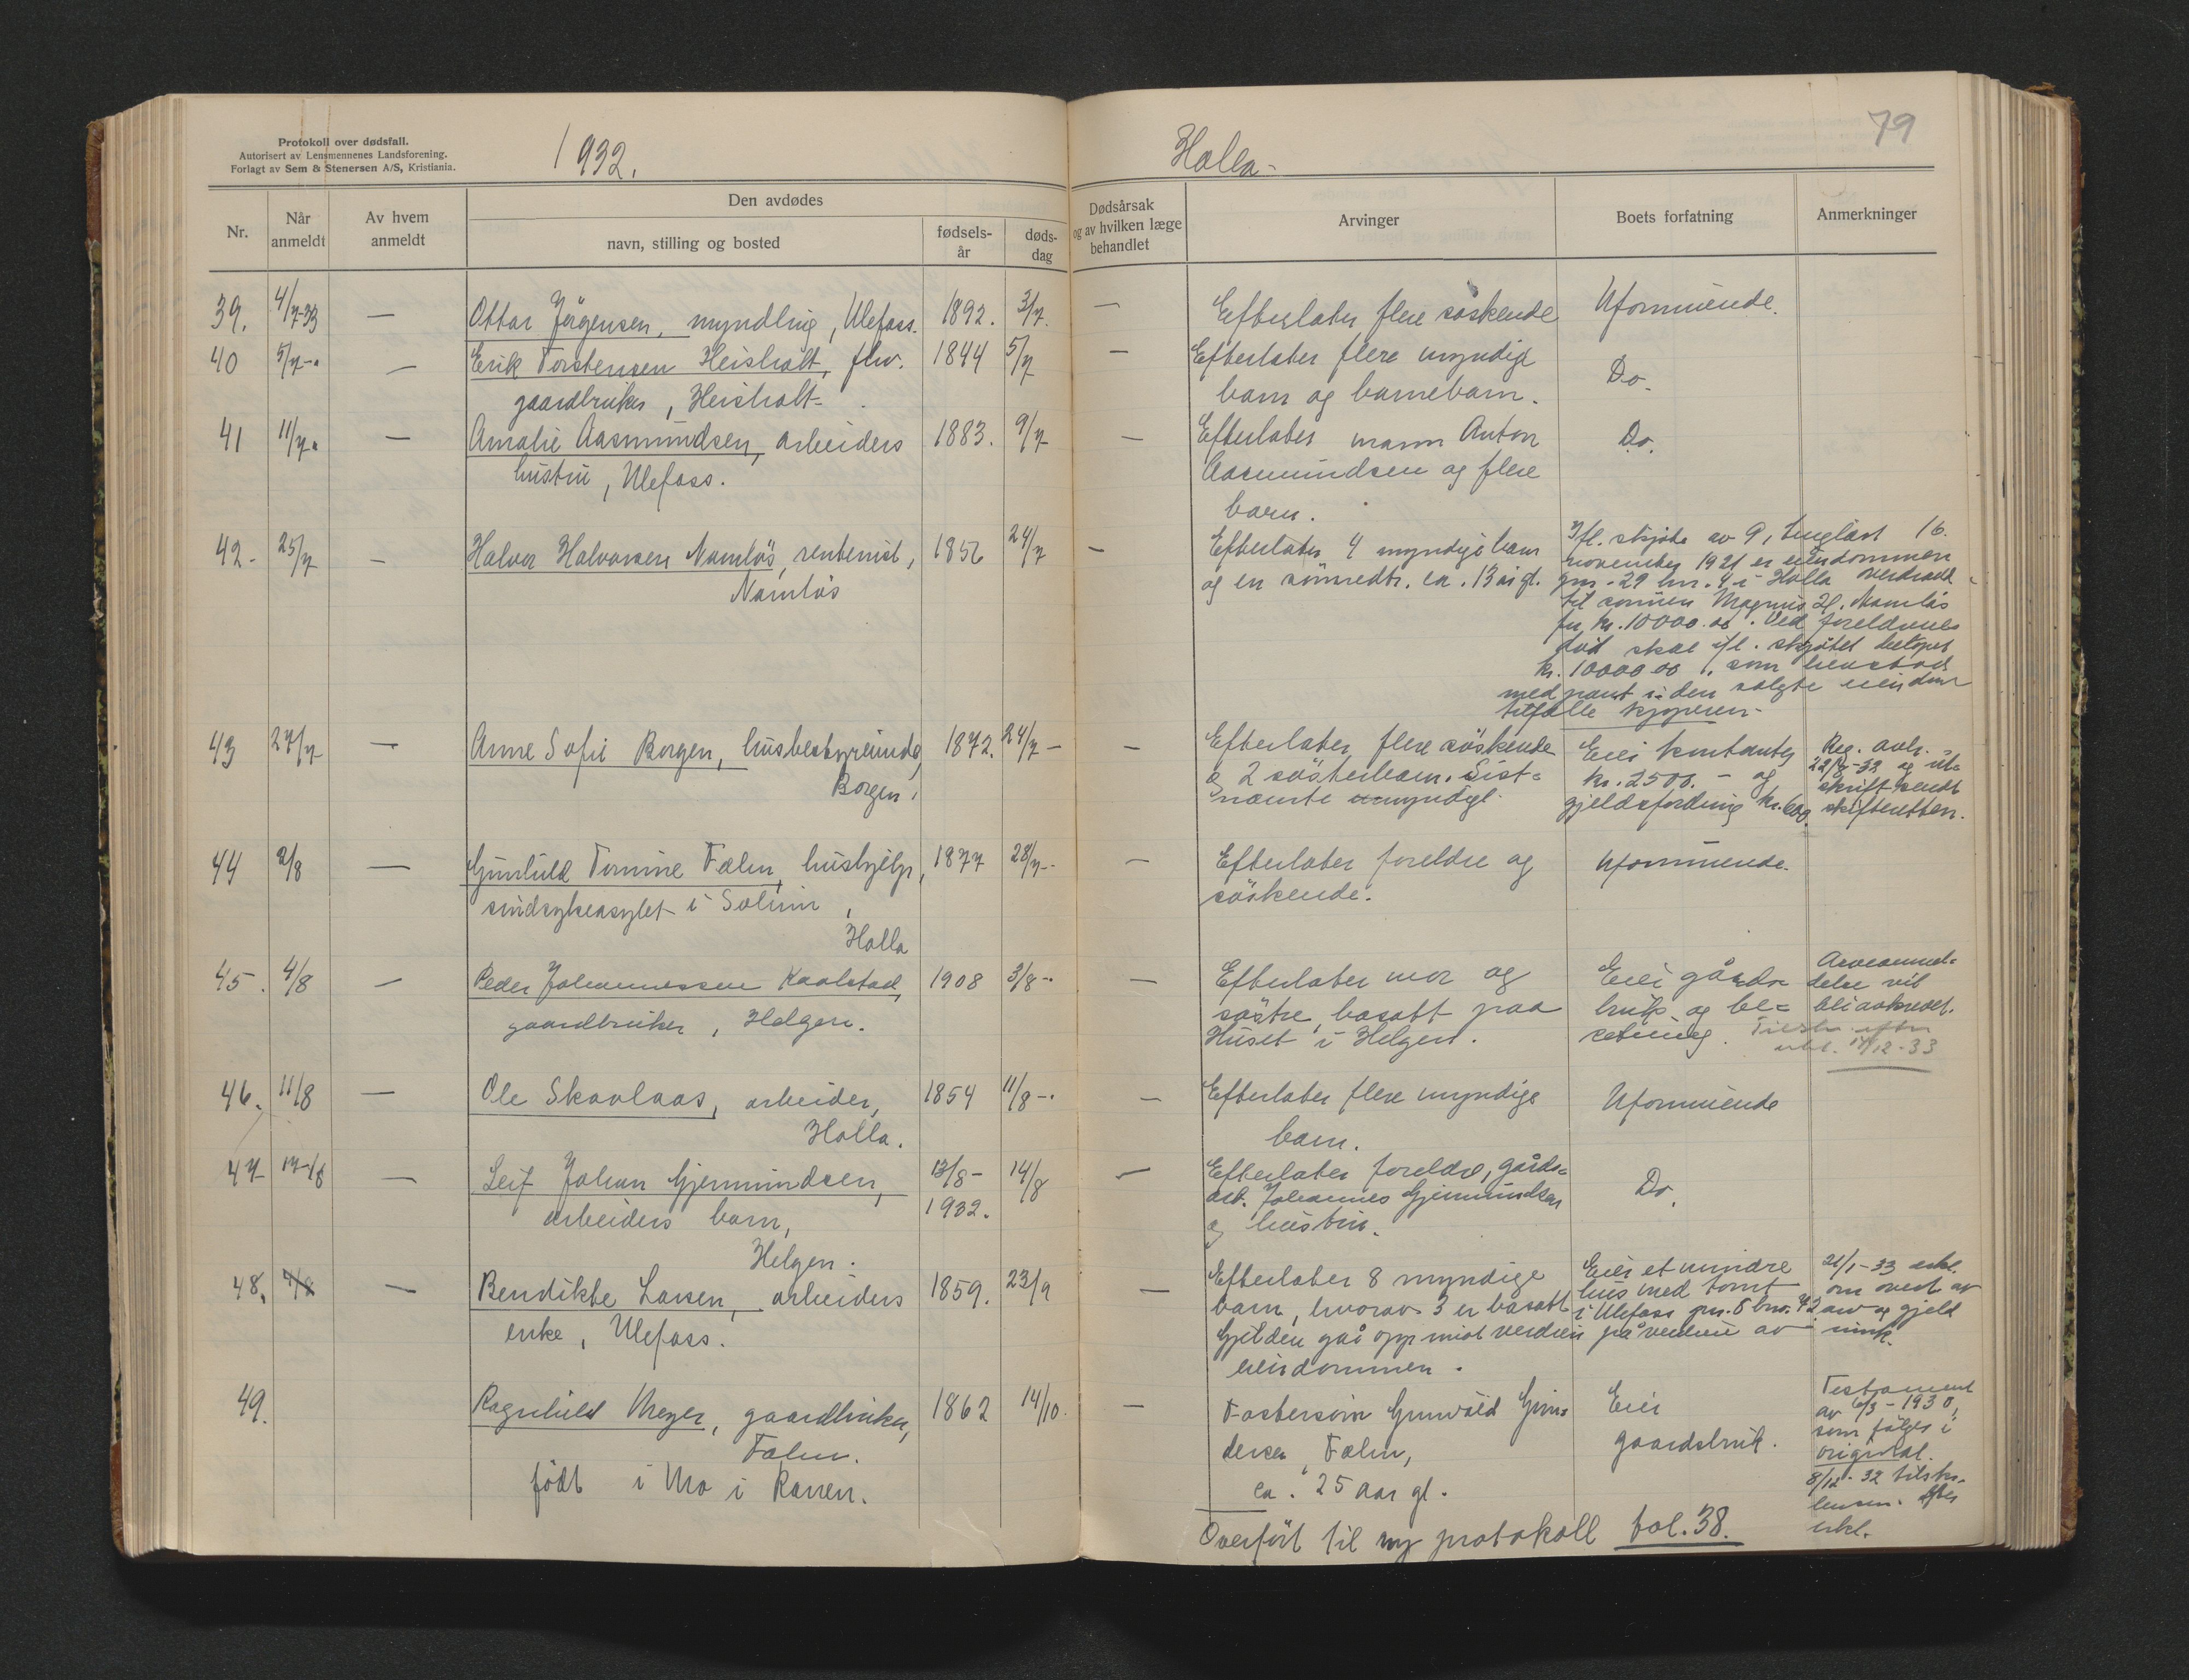 Protokoll over dødsfall.
Autorisert av Lensmennenes Landsforening.
Forlagt av Sem & Stenersen A/S, Kristiania.
1932.
Holla-
79
Nr.
Når anmeldt
Av hvem anmeldt
Den avdødes
navn, stilling og bosted
fødsels-år
døds-dag
Dødsårsak og av hvilken læge behandlet
Arvinger
Boets forfatning
Anmerkninger
39. 4/7-33 — Ottar Jörgensen, myndling, Ulefoss. 1892. 3/7. — Efterlater flere söskende Uformuende.
40 5/7-" — Erik Torstensen Heisholt, fhv. 1844 5/7 — Efterlater flere myndige Do.
gaardbruker, Heisholt-
barn og barnebarn.
41 11/7" — Amalie Aasmundsen, arbeiders 1883. 9/7 — Efterlater mann Anton Do.
hustru, Ulefoss.
Aasmundsen og flere
barn.
42- 25/7 — Halvor Halvorsen Namlös, rentenist, 1856 24/7 — Efterlater 4 myndige barn
Namlös
og en sönnedtr. ca. 13 år gl.
Ifl. skjøte av 9, tinglæst 16.
november 1921 er eiendommen
gnr. 29 bnr. 4 i Holla verdradd
til sønnen Magnus H. Namlös
for kr. 10000.00. Ved foreldrenes
död skal ifl. skjötet belöpet
kr. 10000.00, som henstod
med pant i den solgte eiendom
tilfalle kjøperen-
43 27/7 — Anne Sofie Borgen, husbestyrerinde, 1872. 24/7- — Efterlater flere söskende
Borgen.
& 2 søsterbarn. Sist=
nævnte umyndigl.
Eier kontanter
kr. 2500.- og
gjeldsfordring kr. 600.
Reg. avh.
-32 og ut=
skrift sendt
skifteretten.
44 2/8 — Gunhild Tomine Fæhn, hushjelp, 1877 28/7-. — Efterlater foreldre og Uformuende.
sindsykeasylet i Solum,
Holla
söskende.
45. 4/8 — Peder Johannessen Kaalstad, 1908 3/8-. — Efterlater mor og
gaardbruker, Helgen.
søstre, bosatt paa
Huset i Helgen.
Eier gårds=
bruk og be=
setning.
Arveanmel=
delse vil
bli avkrevet.
17/12-33
46. 11/8 — Ole Skavlaas, arbeider, 1854 11/8-. — Efterlater flere myndige Uformuende
Holla.
barn.
47 17/8 — Leif Johan Gjermundsen, 13/8- 14/8 — Efterlater foreldre, gårds= Do.
arbeiders barn, 1932.
Helgen.
arb. Johannes Gjermundsen
og hustru.
48. 4/8 — Bendikte Larsen, arbeiders 1859. 23/9 — Efterlater 8 myndige
enke, Ulefoss.
barn, hvorav 3 er bosatt
Gjelden gaar opp mot verdien på verdien av
eiendommen.
Eier et mindre
hus med tomt
i Ulefoss gnr. 5 bnr. 42
21/1-33 erkl.
om overt. av
arv og gjeld
49. Ragnhild Meyer, gaardbruker, 1862 14/10. — Fostersön Gunvald Gun=
Fæhn.
dersen, Fæhn,
født i Mo i Ranen.
ca. 25 aar gl.
Eier
gaardsbruk.
Testament
av 6/3-1930,
som følger i
original.
8/12-32
efter
erkl.
Overfört til ny protokoll fol. 38.